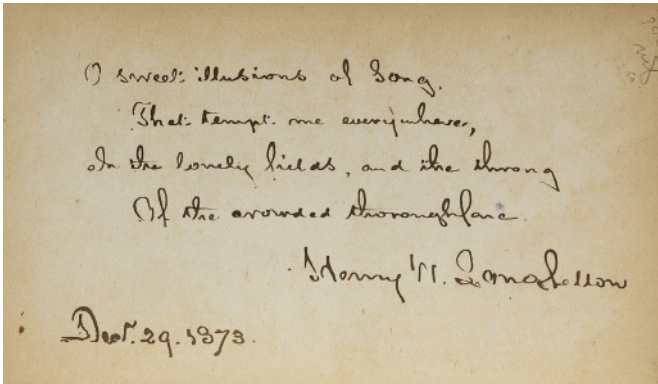 O sweet illusions of Song,
That tempt me everywhere,
In the lonely fields, and the throng
Of the crowded thoroughfare.
Henry W. Longfellow
29. 1873.